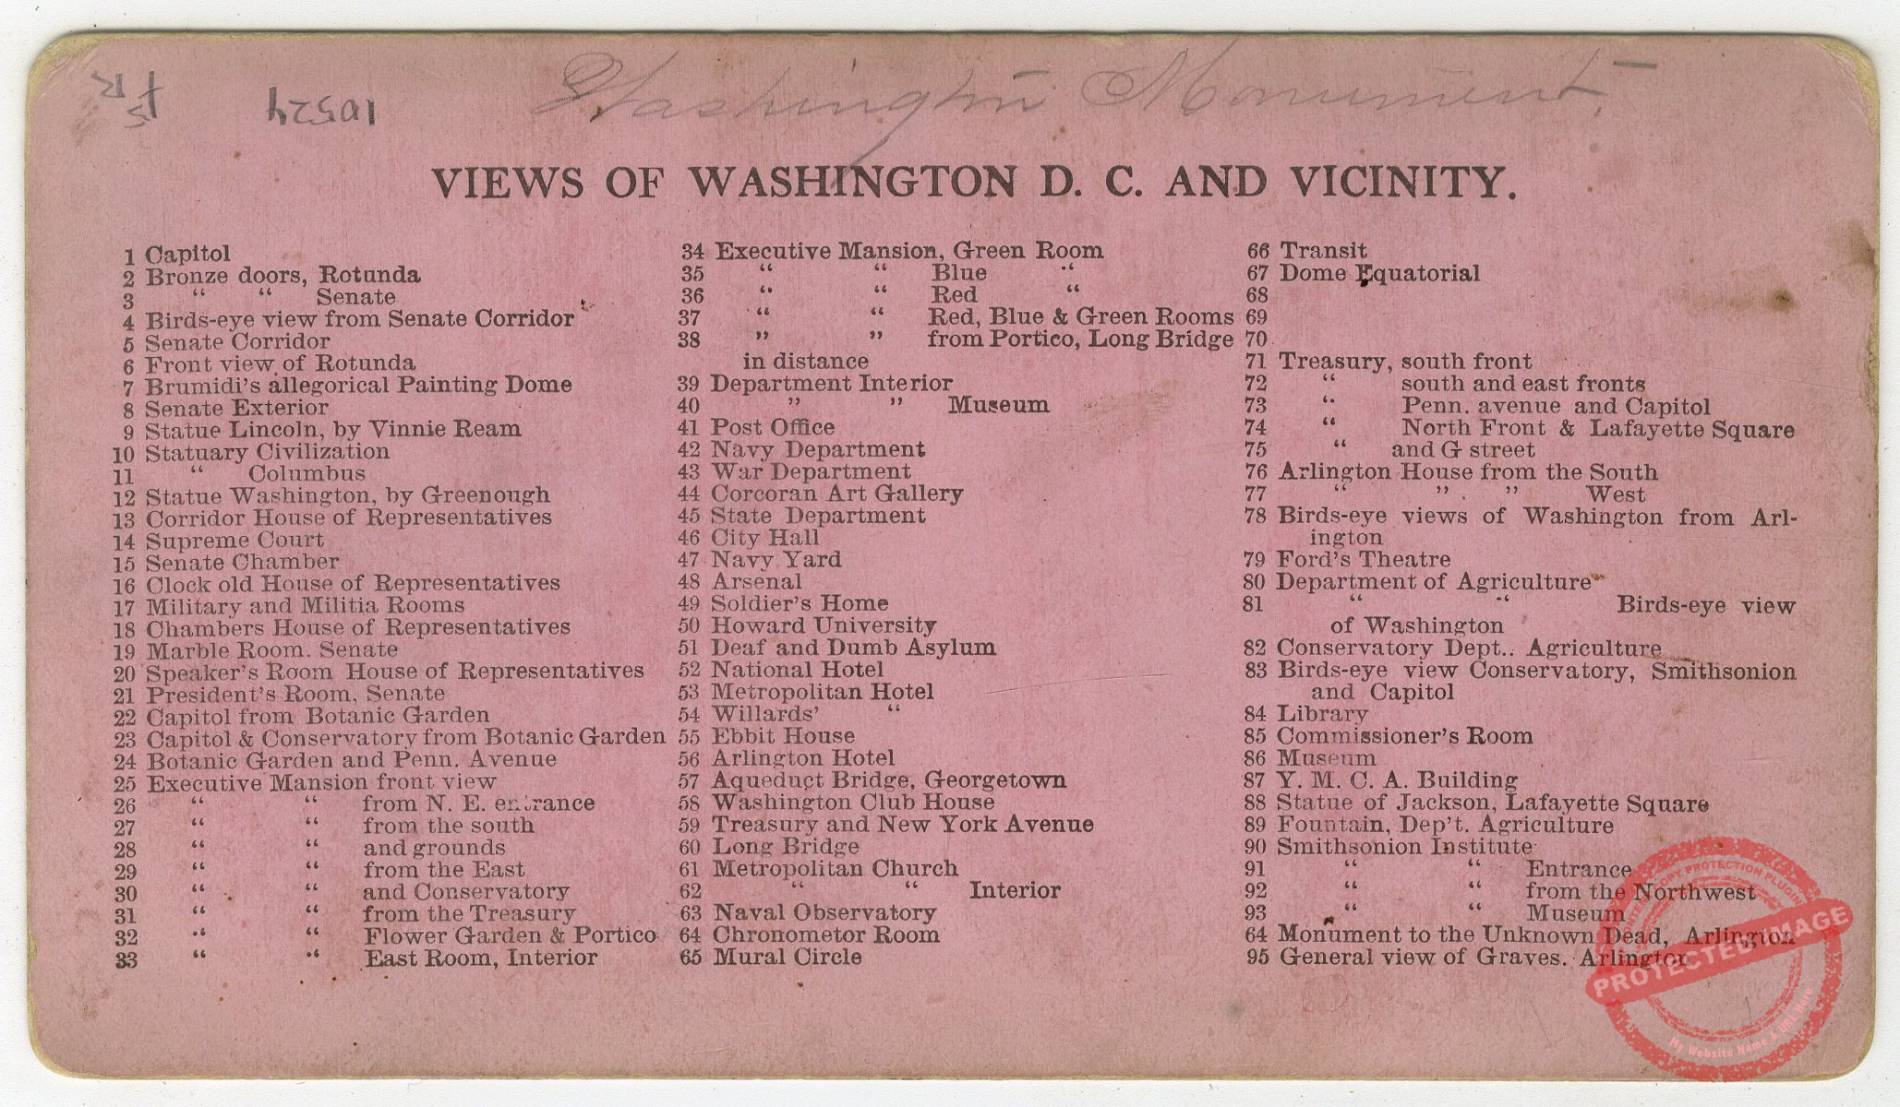 Washington Monument.
10524
VIEWS OF WASHINGTON D. C. AND VICINITY.
1 Capitol
2 Bronze doors, Rotunda
3 “ “ Senate
4 Birds-eye view from Senate Corridor
5 Senate Corridor
6 Front view of Rotunda
7 Brumidi's allegorical Painting Dome
8 Senate Exterior
9 Statue Lincoln, by Vinnie Ream
10 Statuary Civilization
11 “ Columbus
12 Statue Washington, by Greenough
13 Corridor House of Representatives
14 Supreme Court
15 Senate Chamber
16 Clock old House of Representatives
17 Military and Militia Rooms
18 Chambers House of Representatives
19 Marble Room. Senate
20 Speaker's Room House of Representatives
21 President's Room, Senate
22 Capitol from Botanic Garden
23 Capitol & Conservatory from Botanic Garden
24 Botanic Garden and Penn. Avenue
25 Executive Mansion front view
26 “ “ from N. E. entrance
27 “ “ from the south
28 “ “ and grounds
29 “ “ from the East
30 “ “ and Conservatory
31 “ “ from the Treasury
32 “ “ Flower Garden & Portico
33 “ “ East Room, Interior
34 Executive Mansion, Green Room
35 “ “ Blue “
36 “ “ Red “
37 “ “ Red, Blue & Green Rooms
38 ” ” from Portico, Long Bridge
in distance
39 Department Interior
40 ” ” Museum
41 Post Office
42 Navy Department
43 War Department
44 Corcoran Art Gallery
45 State Department
46 City Hall
47 Navy Yard
48 Arsenal
49 Soldier's Home
50 Howard University
51 Deaf and Dumb Asylum
52 National Hotel
53 Metropolitan Hotel
54 Willards' “
55 Ebbit House
56 Arlington Hotel
57 Aqueduct Bridge, Georgetown
58 Washington Club House
59 Treasury and New York Avenue
60 Long Bridge
61 Metropolitan Church
62 “ “ Interior
63 Naval Observatory
64 Chronometor Room
65 Mural Circle
66 Transit
67 Dome Equatorial
68
69
70
71 Treasury, south front
72 “ south and east fronts
73 “ Penn. avenue and Capitol
74 “ North Front & Lafayette Square
75 “ and G street
76 Arlington House from the South
77 “ ” ” West
78 Birds-eye views of Washington from Arl-
ington
79 Ford's Theatre
80 Department of Agriculture
81 “ “ Birds-eye view
of Washington
82 Conservatory Dept.. Agriculture
83 Birds-eye view Conservatory, Smithsonion
and Capitol
84 Library
85 Commissioner's Room
86 Museum
87 Y. M. C. A. Building
88 Statue of Jackson, Lafayette Square
89 Fountain, Dep't. Agriculture
90 Smithsonion Institute
91 “ “ Entrance
92 “ “ from the Northwest
93 “ “ Museum
64 Monument to the Unknown Dead, Arlington
95 General view of Graves. Arlington
PROTECTED IMAGE
My Website Name & URL Here